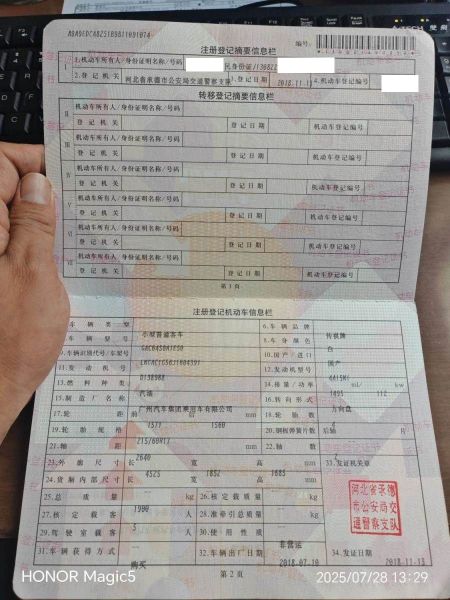 注册登记摘要信息栏
编号:
1.机动车所有人/身份证明名称/号码
2.登记机关 河北省承德市公安局交通警察支队 3.登记日期 2018-11-13 4.机动车登记编号
转移登记摘要信息栏
Ⅱ 机动车所有人/身份证明名称/号码
登记机关 登记日期 机动车登记编号
Ⅲ 机动车所有人/身份证明名称/号码
登记机关 登记日期 机动车登记编号
Ⅳ 机动车所有人/身份证明名称/号码
登记机关 登记日期 机动车登记编号
Ⅴ 机动车所有人/身份证明名称/号码
登记机关 登记日期 机动车登记编号
Ⅵ 机动车所有人/身份证明名称/号码
登记机关 登记日期 机动车登记编号
Ⅶ 机动车所有人/身份证明名称/号码
登记机关 登记日期 机动车登记编号
第1页
注册登记机动车信息栏
车辆类型 小型普通客车 6.车辆品牌 传祺牌
车辆型号 8.车身颜色 白
9.车辆识别代号/车架号 10.国产/进口 国产
11.发动机号 12.发动机型号
13.燃料种类 汽油 14.排量/功率 1495 ml/ 112 kw
15.制造厂名称 广州汽车集团乘用车有限公司 16.转向形式 方向盘
17.轮距 前 1577 后 1560 mm 18.轮胎数 4
19.轮胎规格 215/60R17 20.钢板弹簧片数 后轴 片
21.轴距 2640 mm 22.轴数 2
23.外廓尺寸 长 4525 宽 1852 高 1685 mm 33.发证机关章
24.货厢内部尺寸 长 宽 高 mm
25.总质量 1990 kg 26.核定载质量 kg
27.核定载客 5 人 28.准牵引总质量 kg
29.驾驶室载客 人 30.使用性质 非营运
31.车辆获得方式 购买 32.车辆出厂日期 2018-07-10 34.发证日期 2018-11-13
河北省承德
市公安局交
通警察支队
第2页
HONOR Magic5
2025/07/28 13:29